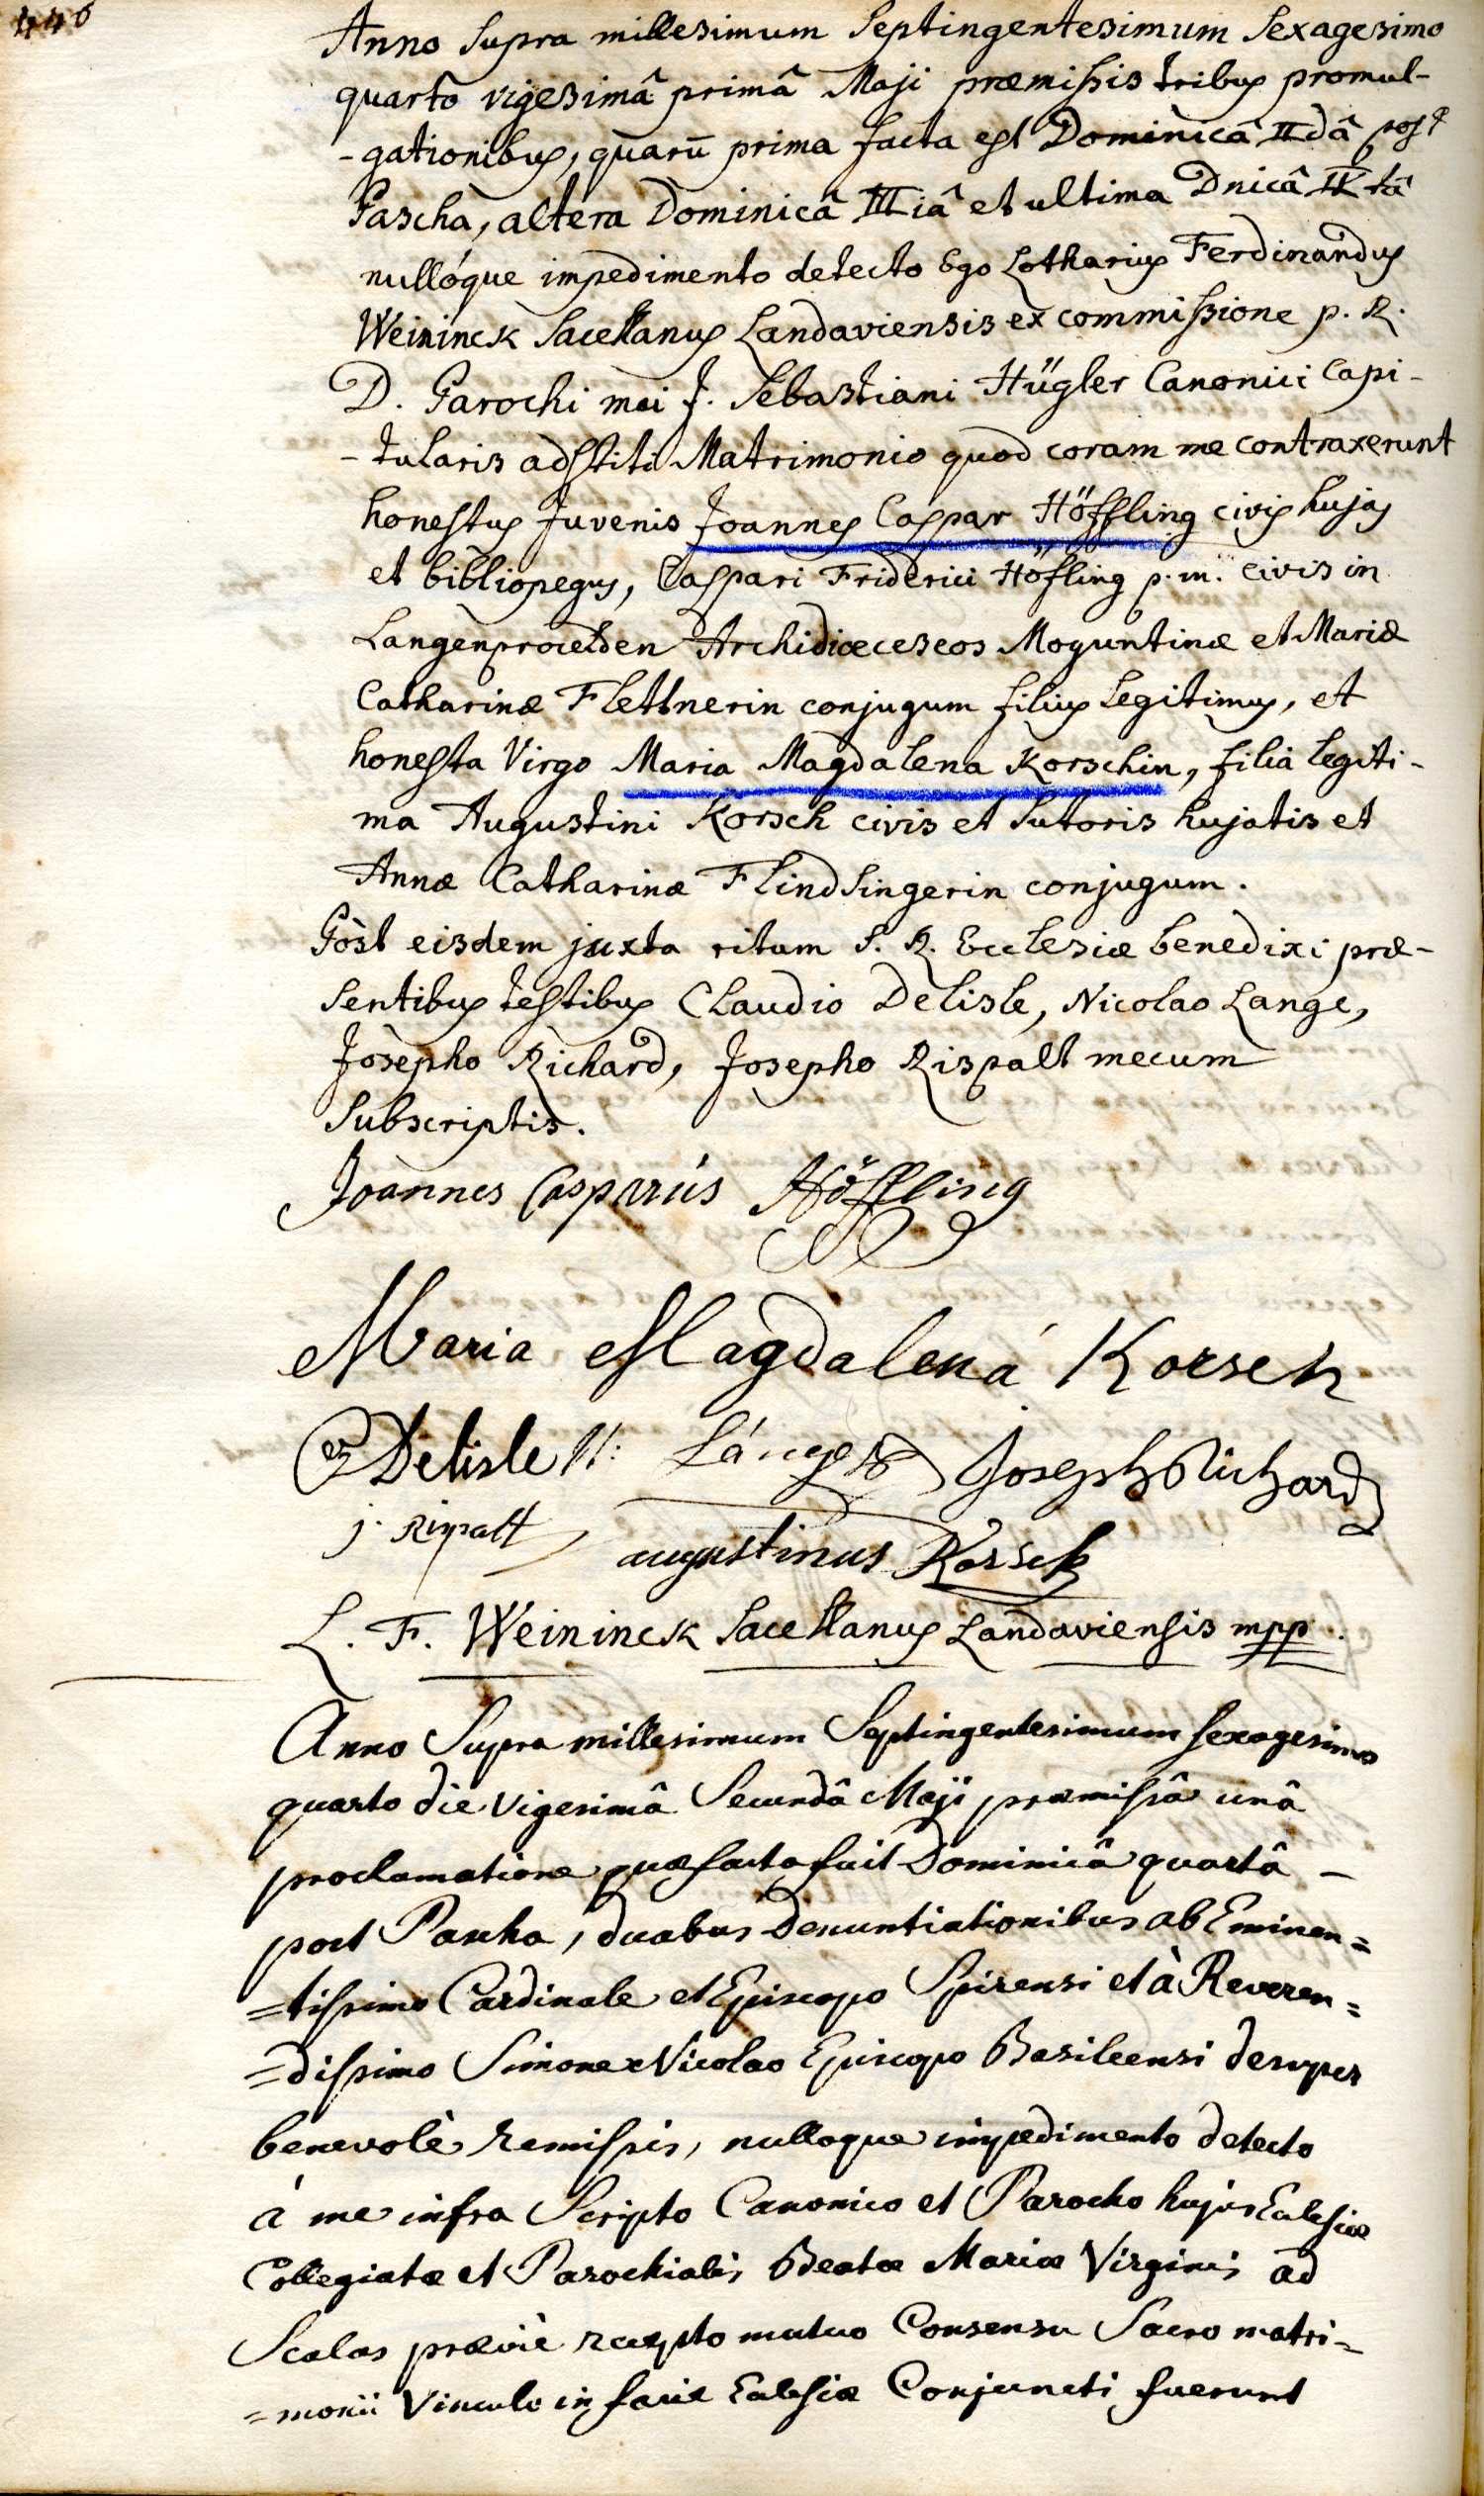 446
Anno Supra millesimum Septingentesimum Sexagesimo
quarto vigesimâ primâ Maji præmissis tribus promul-
-gationibus, quarū prima facta est Dominicâ IIdâ post
Pascha, altera Dominicâ IIIiâ et ultima Dnicâ IVtâ
nullóque impedimento detecto Ego Lotharius Ferdinandus
Weininck Sacellanus Landaviensis ex commissione p. R.
D. Parochi mei J. Sebastiani Hügler Canonici Capi-
-tularis adstiti Matrimonio quod coram me contraxerunt
honestus Juvenis Joannes Caspar Höffling civis hujas
et bibliopegus, Caspari Friderici Höfling p. m. civis in
Langenprocelden Archidiœceseos Moguntinæ et Mariæ
Catharinæ Flettnerin conjugum filius legitimus, et
honesta Virgo Maria Magdalena Korschin, filia legiti-
ma Augustini Korsch civis et Sutoris hujatis et
Annæ Catharinæ Flindsingerin conjugum.
Pòst eisdem juxta ritum S. R. Ecclesiæ benedixi præ-
sentibus testibus Claudio Delisle, Nicolao Lange,
Josepho Richard, Josepho Rispalt mecum
Subscriptis.
Joannes Casparus Höffling
Maria Magdalena Korsch
Delisle N: Lánge Joseph Richard
j. Rispalt
augustinus Korsch
L. F. Weininck Sacellanus Landaviensis mpp.
Anno Supra millesimum Septingentesimum sexagesimo
quarto die vigesimâ Secundâ Maji præmissâ unâ
proclamatione quæ facta fuit Dominicâ quartâ –
post Pascha, duabus denuntiationibus ab Eminen=
=tissimo Cardinale et Episcopo Spirensi et à Reveren=
=dissimo Simone Nicolao Episcopo Basileensi desuper
benevolè remissis, nulloque impedimento detecto
à me infra Scripto Canonico et Parocho hujus Ecclesiæ
Collegiatæ et Parochialis Beatæ Mariæ Virginis ad
Scalas præviè recepto mutuo Consensu Sacro matri=
=monii Vinculo in facie Ecclesiæ Conjuncti fuerunt